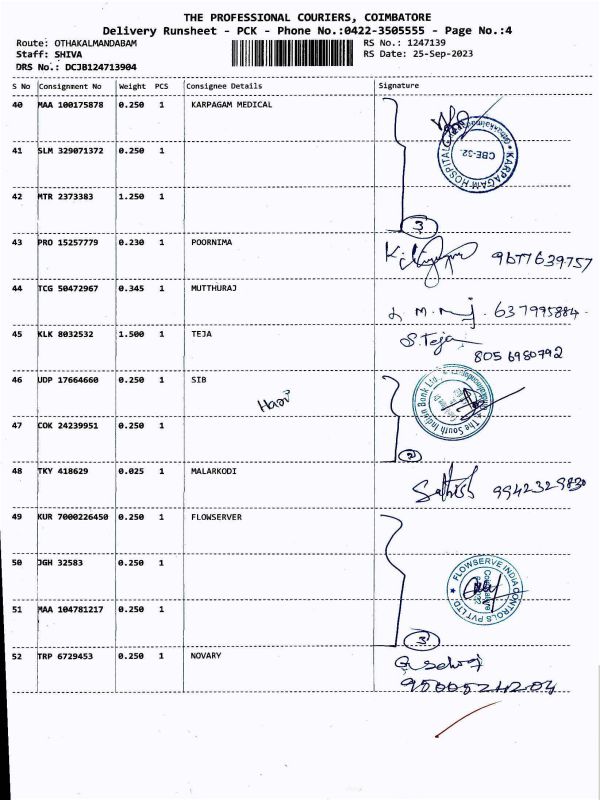 THE PROFESSIONAL COURIERS, COIMBATORE
Delivery Runsheet - PCK - Phone No.:0422-3505555 - Page No.:4
Route: OTHAKALMANDABAM RS No.: 1247139
Staff: SHIVA RS Date: 25-Sep-2023
DRS No.: DCJB124713904
S No Consignment No Weight PCS Consignee Details Signature
40 MAA 100175878 0.250 1 KARPAGAM MEDICAL
KARPAGAM HOSPITAL
CBE-32.
41 SLM 329071372 0.250 1
42 MTR 2373383 1.250 1
3
43 PRO 15257779 0.230 1 POORNIMA
9677639757
44 TCG 50472967 0.345 1 MUTTHURAJ
637995884
45 KLK 8032532 1.500 1 TEJA S.Teja
8056980792
46 UDP 17664660 0.250 1 SIB
Hari
The South Indian Bank Ltd.,
47 COK 24239951 0.250 1
2
48 TKY 418629 0.025 1 MALARKODI Sathish 9942329830
49 KUR 7000226450 0.250 1 FLOWSERVER
50 JGH 32583 0.250 1
FLOWSERVE INDIA CONTROLS PVT LTD
51 MAA 104781217 0.250 1
3
52 TRP 6729453 0.250 1 NOVARY
9500524204